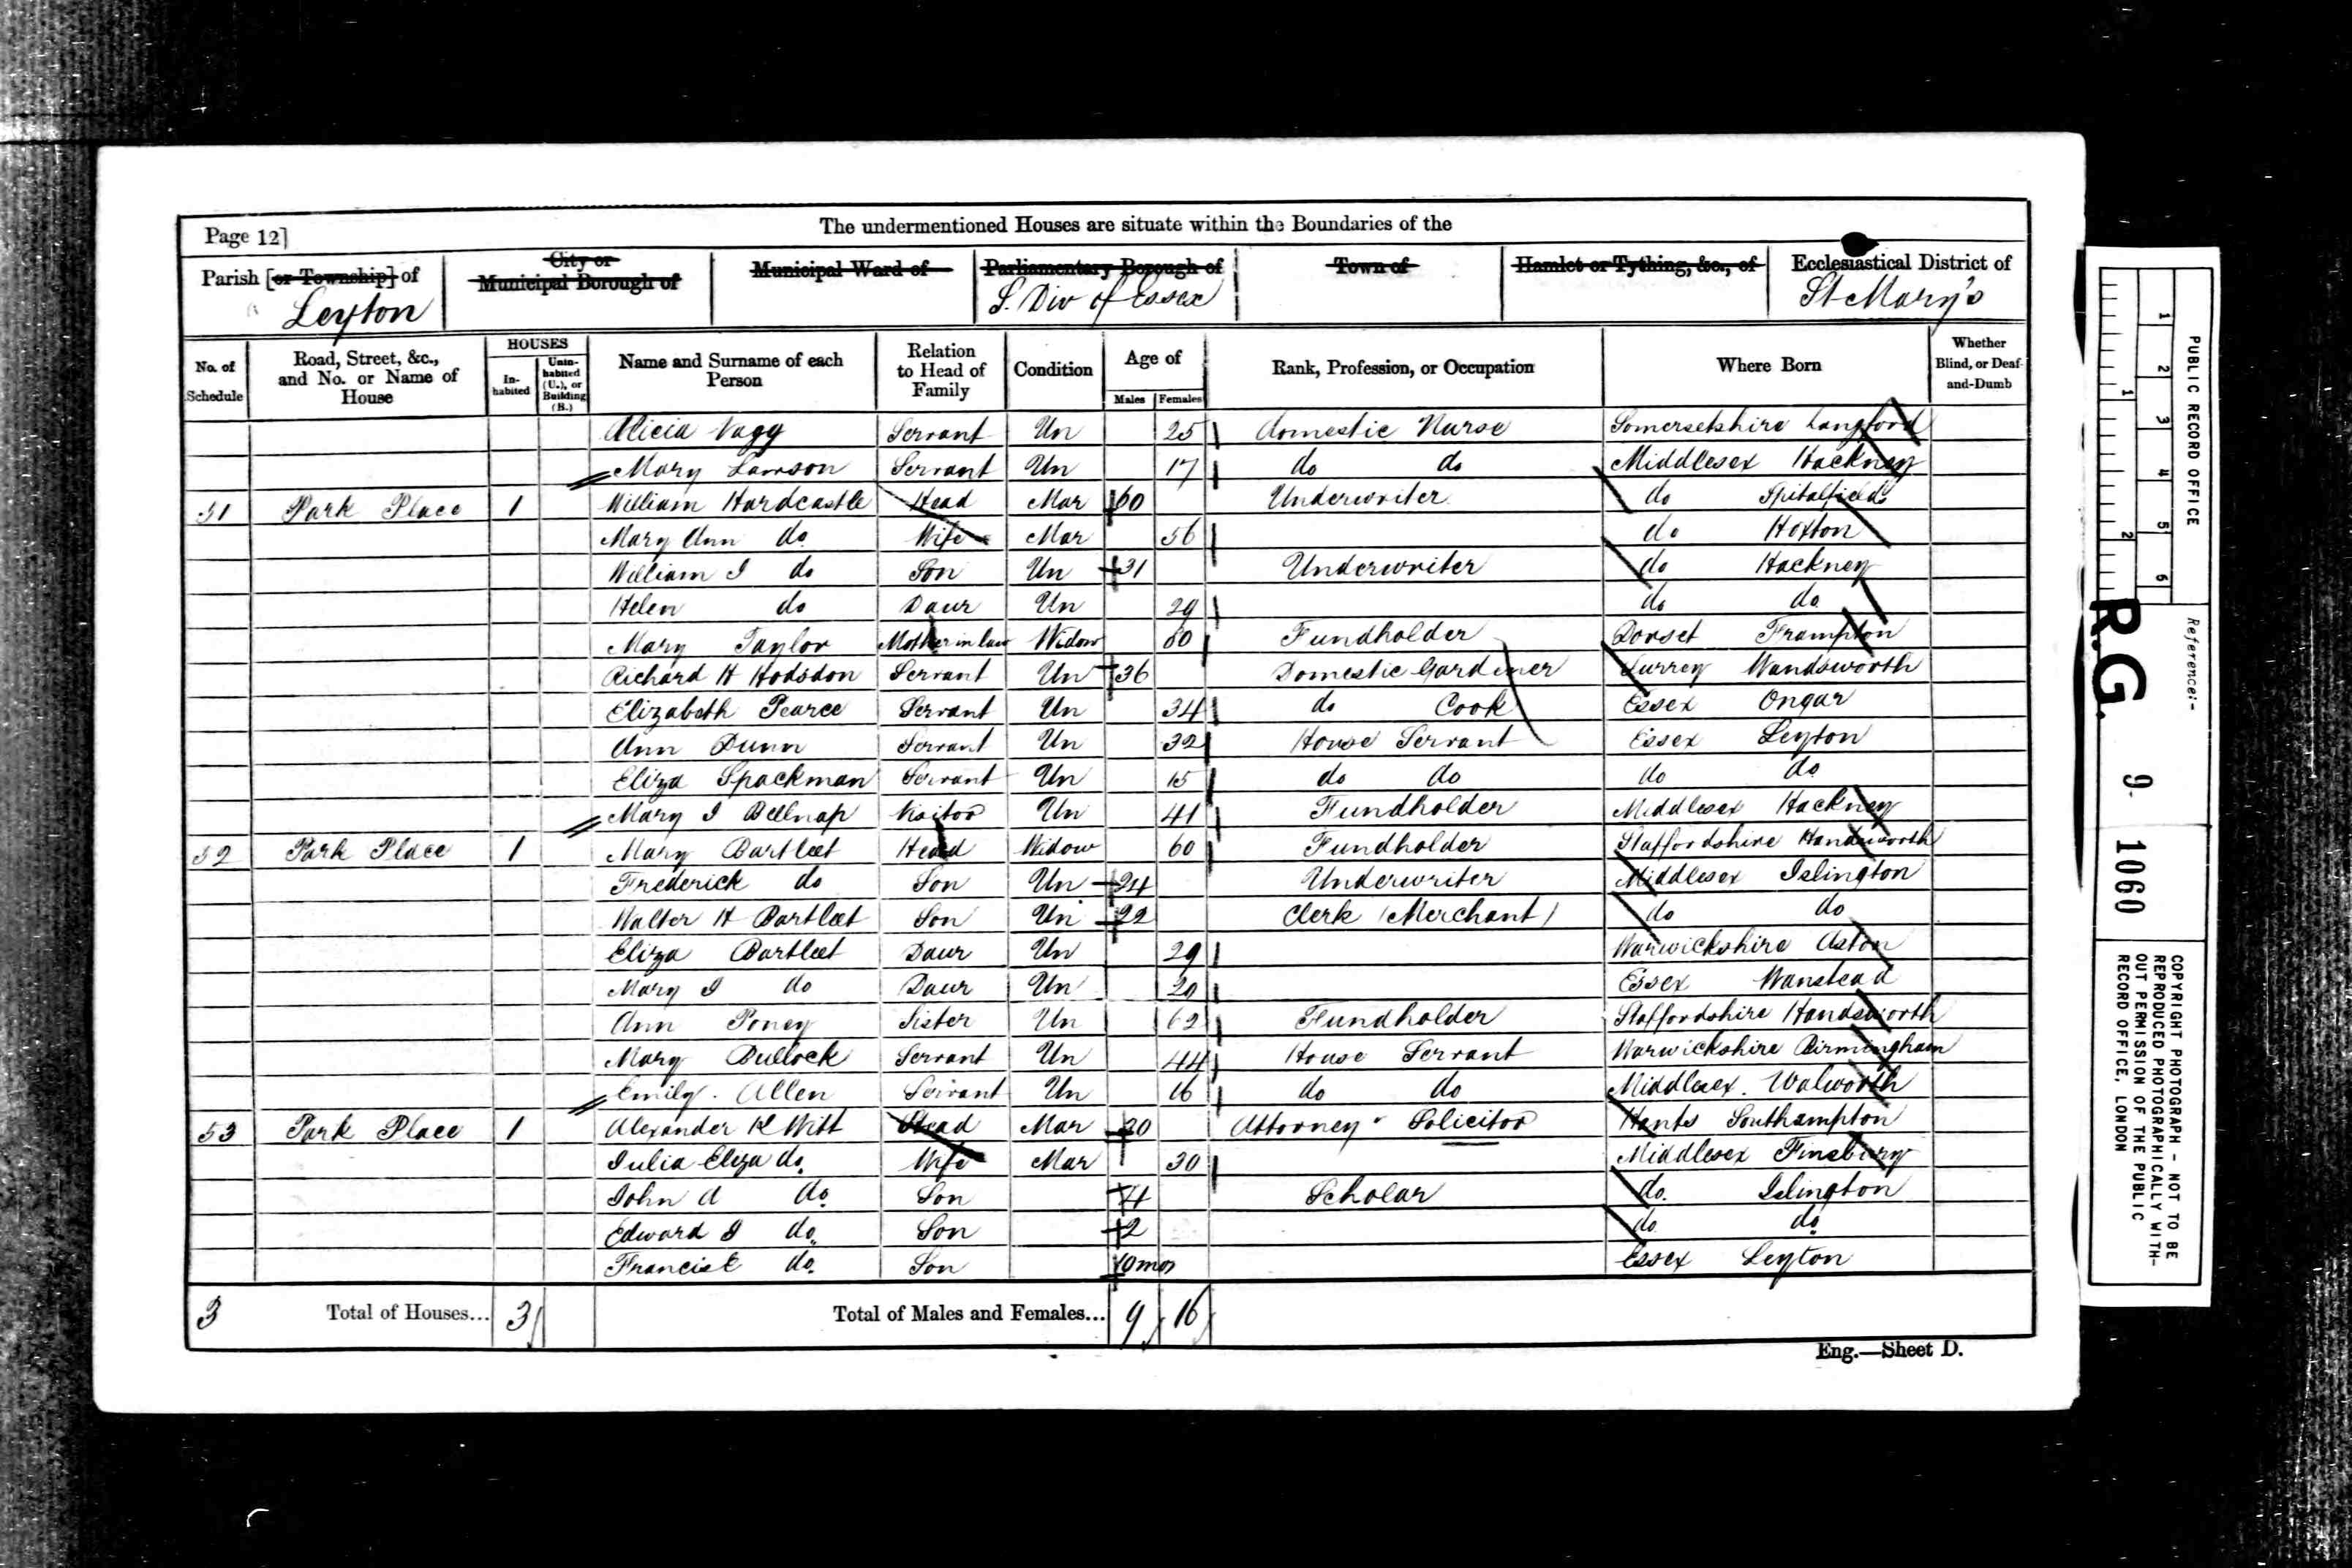 The undermentioned Houses are situate within the Boundaries of the
Page 12]
Parish [or Township] of
Leyton
City or
Municipal Borough of
Municipal Ward of
Parliamentary Borough of
S. Div of Essex
Town of
Hamlet or Tything, &c., of
Ecclesiastical District of
St Mary's
No. of Schedule
Road, Street, &c., and No. or Name of House
HOUSES
Inhabited
Uninhabited (U.), or Building (B.)
Name and Surname of each Person
Relation to Head of Family
Condition
Age of
Males
Females
Rank, Profession, or Occupation
Where Born
Whether Blind, or Deaf-and-Dumb
Alicia Vagg Servant Un 25 Domestic Nurse Somersetshire Langford
Mary Lawson Servant Un 17 do do Middlesex Hackney
51 Park Place 1 William Hardcastle Head Mar 60 Underwriter do Spitalfields
Mary Ann do Wife Mar 56 do Hoxton
William J do Son Un 31 Underwriter do Hackney
Helen do Daur Un 29 do do
Mary Taylor Mother in law Widow 80 Fundholder Dorset Frampton
Richard H Hodsdon Servant Un 36 Domestic Gardener Surrey Wandsworth
Elizabeth Pearce Servant Un 34 do Cook Essex Ongar
Ann Dunn Servant Un 32 House Servant Essex Leyton
Eliza Spackman Servant Un 15 do do do do
Mary J Bellnap Visitor Un 41 Fundholder Middlesex Hackney
52 Park Place 1 Mary Bartleet Head Widow 60 Fundholder Staffordshire Handsworth
Frederick do Son Un 24 Underwriter Middlesex Islington
Walter H Bartleet Son Un 22 Clerk (Merchant) do do
Eliza Bartleet Daur Un 29 Warwickshire Aston
Mary J do Daur Un 20 Essex Wanstead
Ann Poney Sister Un 62 Fundholder Staffordshire Handsworth
Mary Bullock Servant Un 44 House Servant Warwickshire Birmingham
Emily. Allen Servant Un 16 do do Middlesex. Walworth
53 Park Place 1 Alexander K Witt Head Mar 30 Attorney Solicitor Hants Southampton
Julia Eliza do Wife Mar 30 Middlesex Finsbury
John A do Son 4 Scholar do Islington
Edward J do Son 2 do do
Francis E do Son 10 mos Essex Leyton
3 Total of Houses... 3 Total of Males and Females... 9 16
Eng.—Sheet D.
PUBLIC RECORD OFFICE
1 2 3 4 5 6
1 2
Reference:-
R.G. 9 1060
COPYRIGHT PHOTOGRAPH - NOT TO BE
REPRODUCED PHOTOGRAPHICALLY WITH-
OUT PERMISSION OF THE PUBLIC
RECORD OFFICE, LONDON